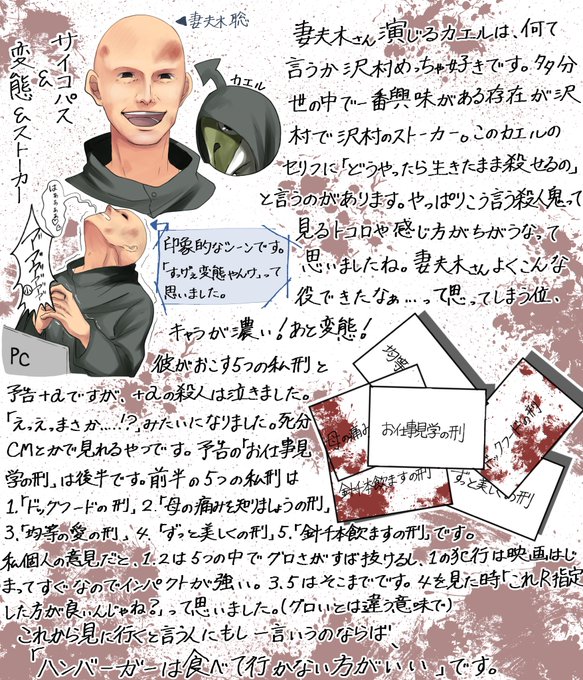 妻夫木聡
サイコパス
&
変態&ストーカー
カエル
妻夫木さん演じるカエルは、何て
言うか沢村めっちゃ好きです。多分
世の中で一番興味がある存在が沢
村で沢村のストーカー。このカエルの
セリフに「どうやったら生きたまま殺せるの」
と言うのがあります。やっぱりこう言う殺人鬼って
見るトコロや感じ方がちがうなって
思いましたね。妻夫木さんよくこんな
役できたなぁ…って思ってしまう位、
キャラが濃い!あと変態!
印象的なシーンです。
「すっげぇ変態やんけ」って
思いました。
PC
彼がおこす5つの私刑と
予告+αですが、+αの殺人は泣きました。
「えっえっまさか…!?」みたいになりました。死分
CMとかで見れるやつです。予告の「お仕事見
学の刑」は後半です。前半の5つの私刑は
1.「ドックフードの刑」2.「母の痛みを知りましょうの刑」
3.「均等の愛の刑」4.「ずっと美しくの刑」5.「針千本飲ますの刑」です。
私個人の意見だと、1.2は5つの中でグロさがずば抜けてるし、1の犯行は映画はじ
まってすぐなのでインパクトが強い。3.5はそこまでです。4を見た時「これR指定
した方が良いんじゃね?」って思いました。(グロいとは違う意味で)
これから見に行くと言う人にもし一言いうのならば、
「ハンバーガーは食べて行かない方がいい」です。
均等
母の痛み
お仕事見学の刑
ックフードの刑
針千本飲ますの刑
ずっと美しくの刑